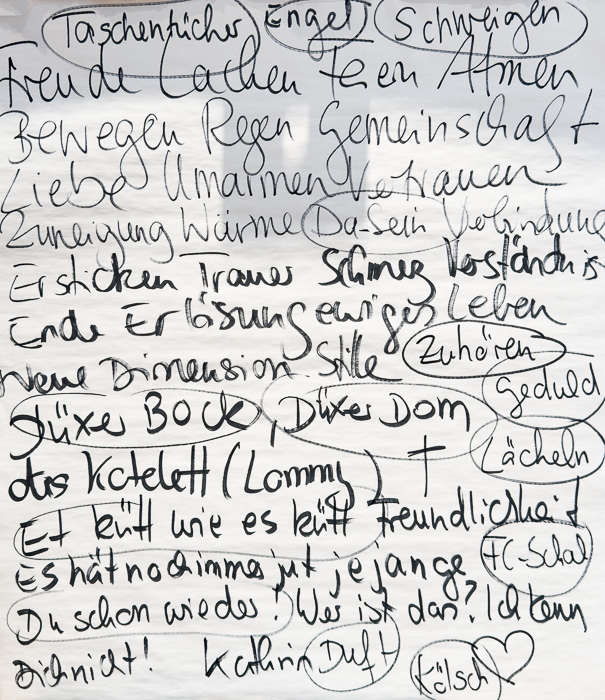 Taschentücher Engel Schweigen
Freude Lachen Feiern Atmen
Bewegen Regen Gemeinschaft
Liebe Umarmen Vertrauen
Zuneigung Wärme Da-Sein Verbindung
Ersticken Trauer Schmerz Verständnis
Ende Erlösung ewiges Leben
Neue Dimension Stille Zuhören
Geduld
Düxer Bock, Düxer Dom
Lächeln
das Kotelett (Lommi) †
Et kütt wie es kütt Freundlichkeit
Es hät noch immer jut jejange FC-Schal
Du schon wieder! Wer ist das? Ich kenn
Dich nicht! Kathrin Duft Kölsch ♡